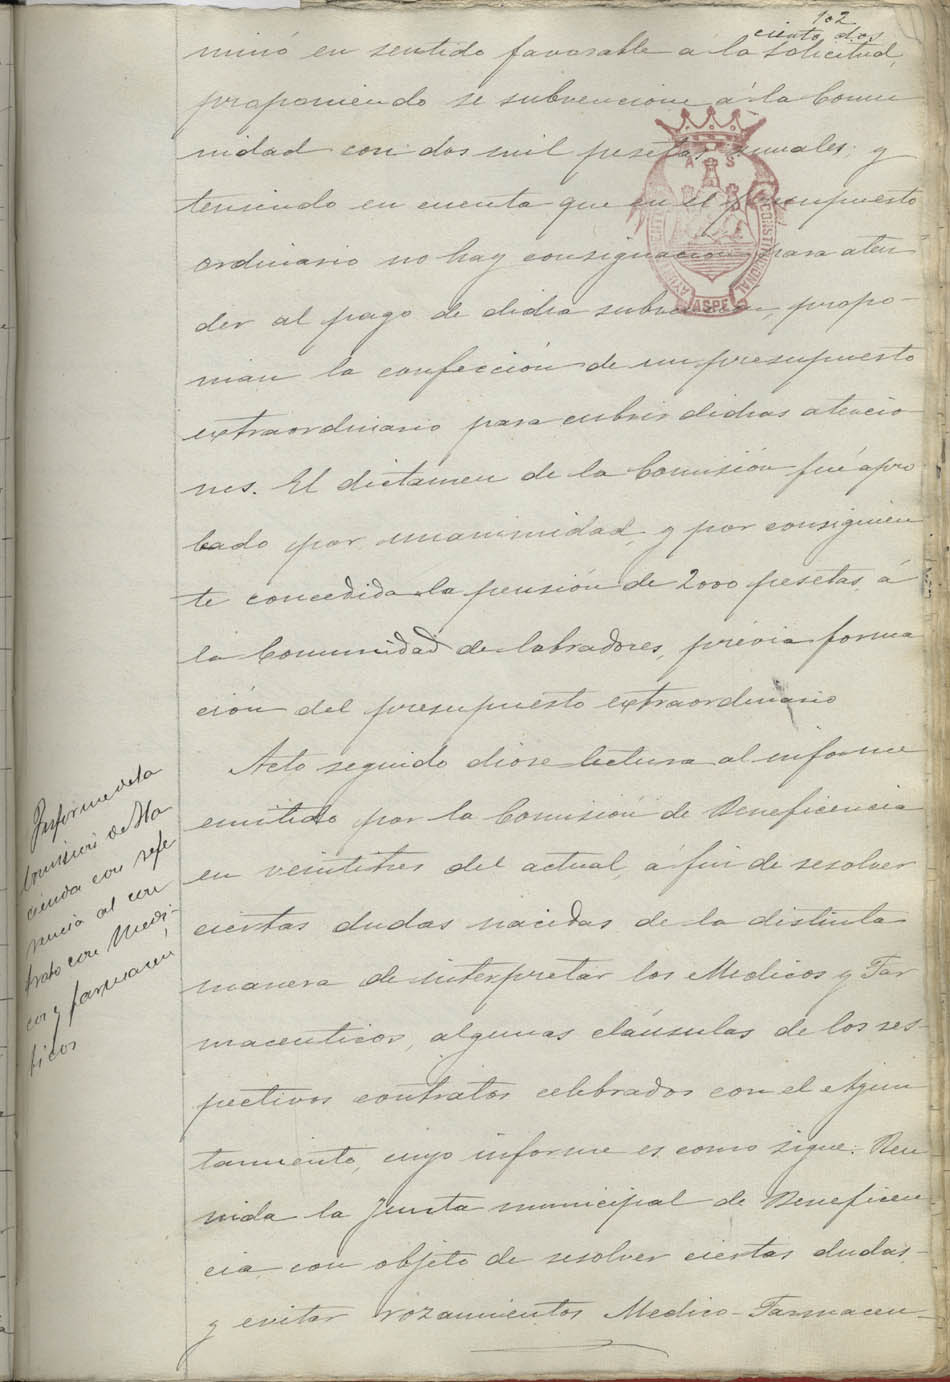 102
ciento dos
minó en sentido favorable á la solicitud,
proponiendo se subvencione á la Comu
nidad con dos mil pesetas anuales; y
teniendo en cuenta que en el presupuesto
ordinario no hay consignación para aten
der al pago de dicha subvención, propo-
nian la confección de un presupuesto
extraordinario para cubrir dichas atencio
nes. El dictamen de la Comisión fué apro
bado por unanimidad, y por consiguien
te concedida la pensión de 2000 pesetas á
la Comunidad de labradores, prévia forma
ción del presupuesto extraordinario
Acto seguido diose lectura al informe
emitido por la Comisión de Beneficencia
en veintitres del actual, á fin de resolver
ciertas dudas nacidas de la distinta
manera de interpretar los Medicos y Far
maceuticos, algunas cláusulas de los res
pectivos contratos celebrados con el Ayun
tamiento, cuyo informe es como sigue: Reu
nida la Junta municipal de Beneficen
cia con objeto de resolver ciertas dudas,
y evitar rozamientos Medico-Farmaceu-
Informe de la
Comisión de Ha
cienda con refe
rencia al con
trato con Medi-
cos y farmaceu
ticos
A S
CONSTITUCIONAL
ASPE